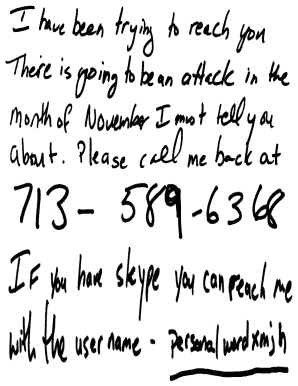 I have been trying to reach you
There is going to be an attack in the
month of November I must tell you
about. Please call me back at
713 - 589 - 6368
If you have skype you can reach me
with the username - personalwordxmjh